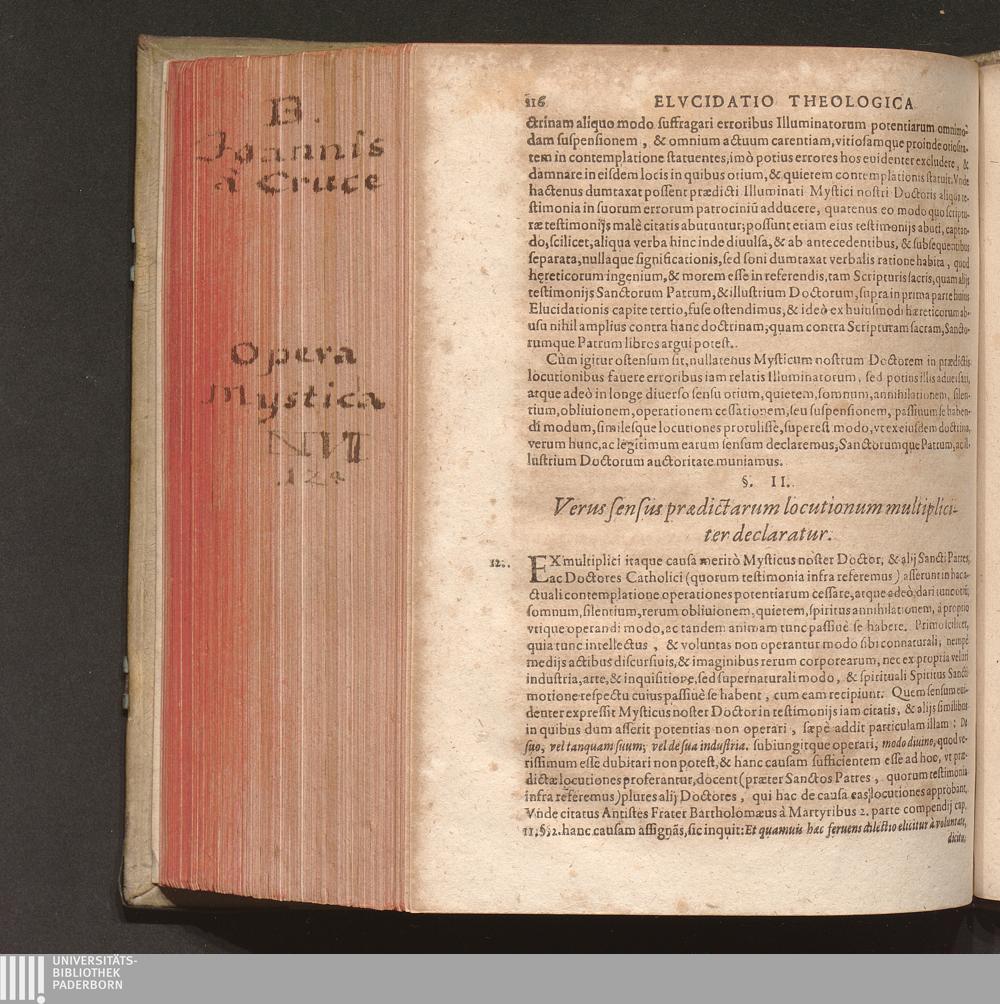 B.
Joannis
à Cruce
Opera
Mystica
116 ELVCIDATIO THEOLOGICA
ctrinam aliquo modo suffragari erroribus Illuminatorum potentiarum omnimo-
dam suspensionem, & omnium actuum carentiam, vitiosamque proinde otiosita-
tem in contemplatione statuentes, imò potius errores hos euidenter excludere, &
damnare in eisdem locis in quibus otium, & quietem contemplationis statuit. Vnde
hactenus dumtaxat possent prædicti Illuminati Mystici nostri Doctoris aliqua te-
stimonia in suorum errorum patrociniū adducere, quatenus eo modo quo scriptu-
ræ testimonijs malè citatis abutuntur; possunt etiam eius testimonijs abuti, captan-
do, scilicet, aliqua verba hinc inde diuulsa, & ab antecedentibus, & subsequentibus
separata, nullaque significationis, sed soni dumtaxat verbalis ratione habita, quod
hęreticorum ingenium, & morem esse in referendis, tam Scripturis sacris, quam alijs
testimonijs Sanctorum Patrum, & illustrium Doctorum, supra in prima parte huius
Elucidationis capite tertio, fuse ostendimus, & ideò ex huiusmodi hæreticorum ab-
usu nihil amplius contra hanc doctrinam; quam contra Scripturam sacram, Sancto-
rumque Patrum libros argui potest.
Cùm igitur ostensum sit, nullatenus Mysticum nostrum Doctorem in prædictis
locutionibus fauere erroribus iam relatis Illuminatorum, sed potius illis aduersari,
atque adeò in longe diuerso sensu otium, quietem, somnum, annihilationem, silen-
tium, obliuionem, operationem cessationem, seu suspensionem, passiuum se haben-
di modum, similesque locutiones protulisse, superest modo, vt ex eiusdem doctrina,
verum hunc, ac legitimum earum sensum declaremus, Sanctorumque Patrum, ac il-
lustrium Doctorum auctoritate muniamus.
§. II.
Verus sensus prædictarum locutionum multiplici-
ter declaratur.
EX multiplici itaque causa meritò Mysticus noster Doctor, & alij Sancti Patres,
ac Doctores Catholici (quorum testimonia infra referemus) asserunt in hac a-
ctuali contemplatione operationes potentiarum cessare, atque adeò dari tunc otiū,
somnum, silentium, rerum obliuionem, quietem, spiritus annihilationem, à proprio
vtique operandi modo, ac tandem animam tunc passiuè se habere. Primo scilicet,
quia tunc intellectus, & voluntas non operantur modo sibi connaturali, nempè
medijs actibus discursiuis, & imaginibus rerum corporearum, nec ex propria velari
industria, arte, & inquisitione, sed supernaturali modo, & spirituali Spiritus Sancti
motione respectu cuius passiuè se habent, cum eam recipiunt. Quem sensum eui-
denter expressit Mysticus noster Doctor in testimonijs iam citatis, & alijs similibus
in quibus dum asserit potentias non operari, sæpè addit particulam illam: De
suo, vel tanquam suum; vel de sua industria. subiungitque operari, modo diuino, quod ve-
rissimum esse dubitari non potest, & hanc causam sufficientem esse ad hoc, vt præ-
dictæ locutiones proferantur, docent (præter Sanctos Patres, quorum testimonia
infra referemus) plures alij Doctores, qui hac de causa eas locutiones approbant,
Vnde citatus Antistes Frater Bartholomæus à Martyribus 2. parte compendij cap.
11, §, 2. hanc causam assignās, sic inquit: Et quamuis hac feruens dilectio elicitur à voluntate,
dicitur
UNIVERSITÄTS-
BIBLIOTHEK
PADERBORN